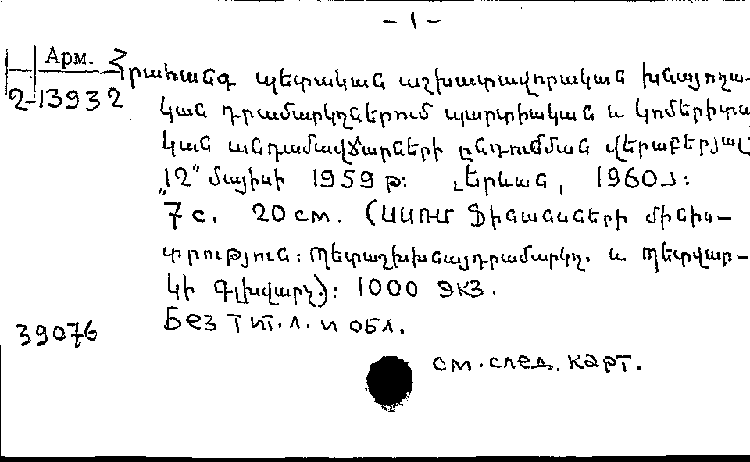 - 1 -
Арм.
2-13932
Հրահանգ պետական աշխատավորական խնայողա-
կան դրամարկղներում պարտիական և կոմերիտա
կան անդամավճարների ընդունման վերաբերյալ
„12" մայիսի 1959 թ: Երևան, 1960թ:
7 с. 20 см. (ՍՍՌՄ Ֆինանսների մինիս-
տրություն: Պետաշխխնայդրամարկղ. և Պետվար-
կի գլխվարչ): 1000 экз.
Без тит. л. и обл.
39076
см. след. карт.